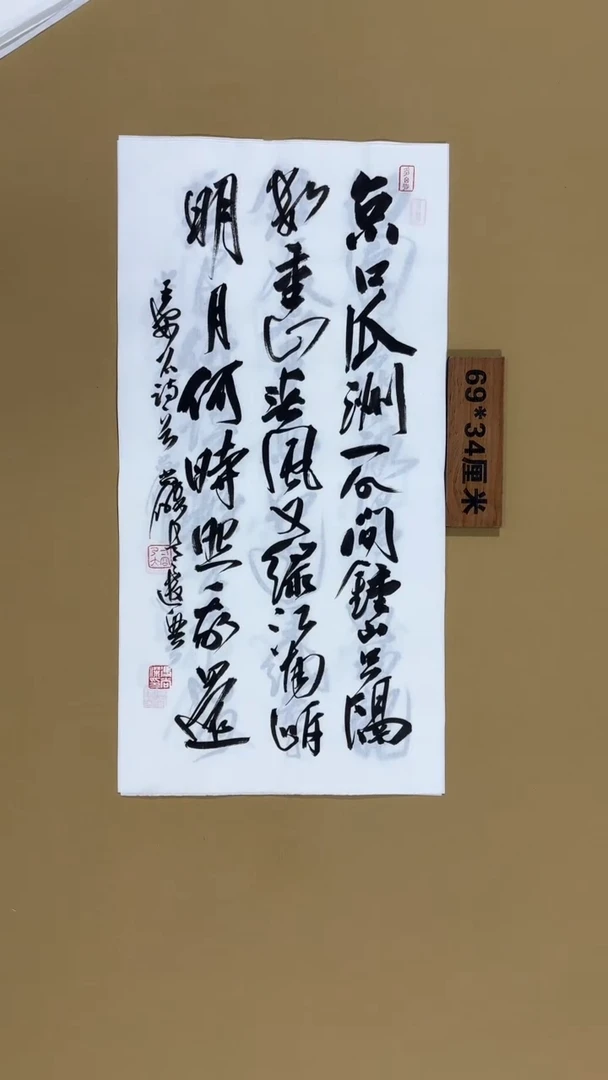 京口瓜洲一水间鐘山只隔
数重山春風又緑江南岸
明月何時照我還
王安石詩
69*34厘米